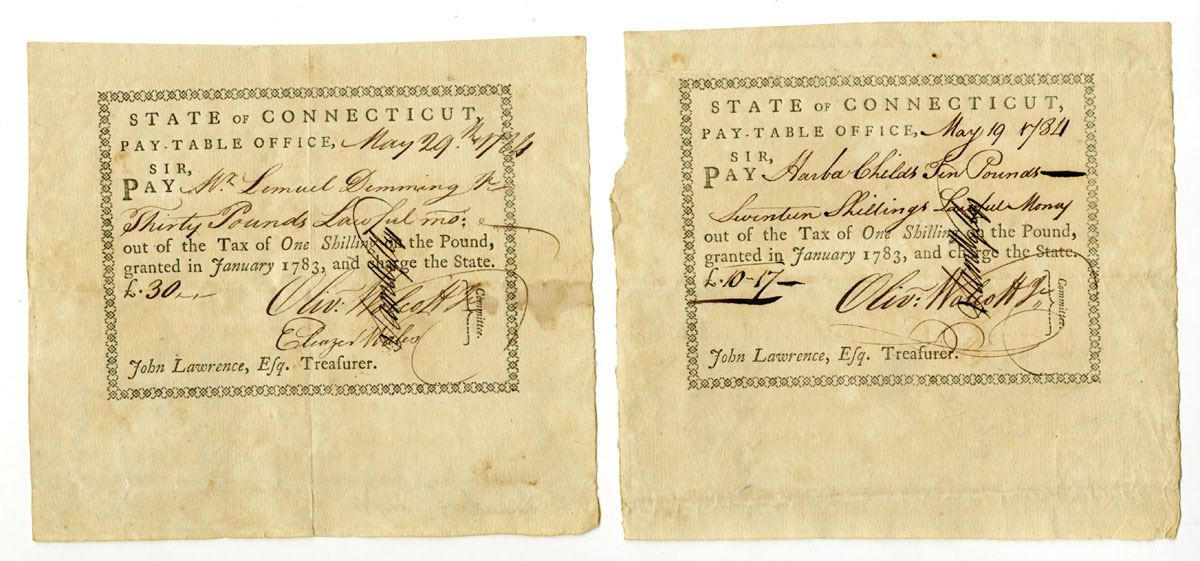 STATE OF CONNECTICUT,
PAY-TABLE OFFICE, May 29.th 1784
SIR,
PAY Mr. Lemuel Demming &c
Thirty Pounds Lawful mo:
out of the Tax of One Shilling on the Pound,
granted in January 1783, and charge the State.
£.30
Oliv: Wolcott Jr
Committee.
Eleazer Wales
John Lawrence, Esq. Treasurer.
STATE OF CONNECTICUT,
PAY-TABLE OFFICE, May 19 1784
SIR,
PAY Harba Childs Ten Pounds
Seventeen Shillings Lawful Money
out of the Tax of One Shilling on the Pound,
granted in January 1783, and charge the State.
£.10-17-
Oliv: Wolcott Jr
Committee.
John Lawrence, Esq. Treasurer.